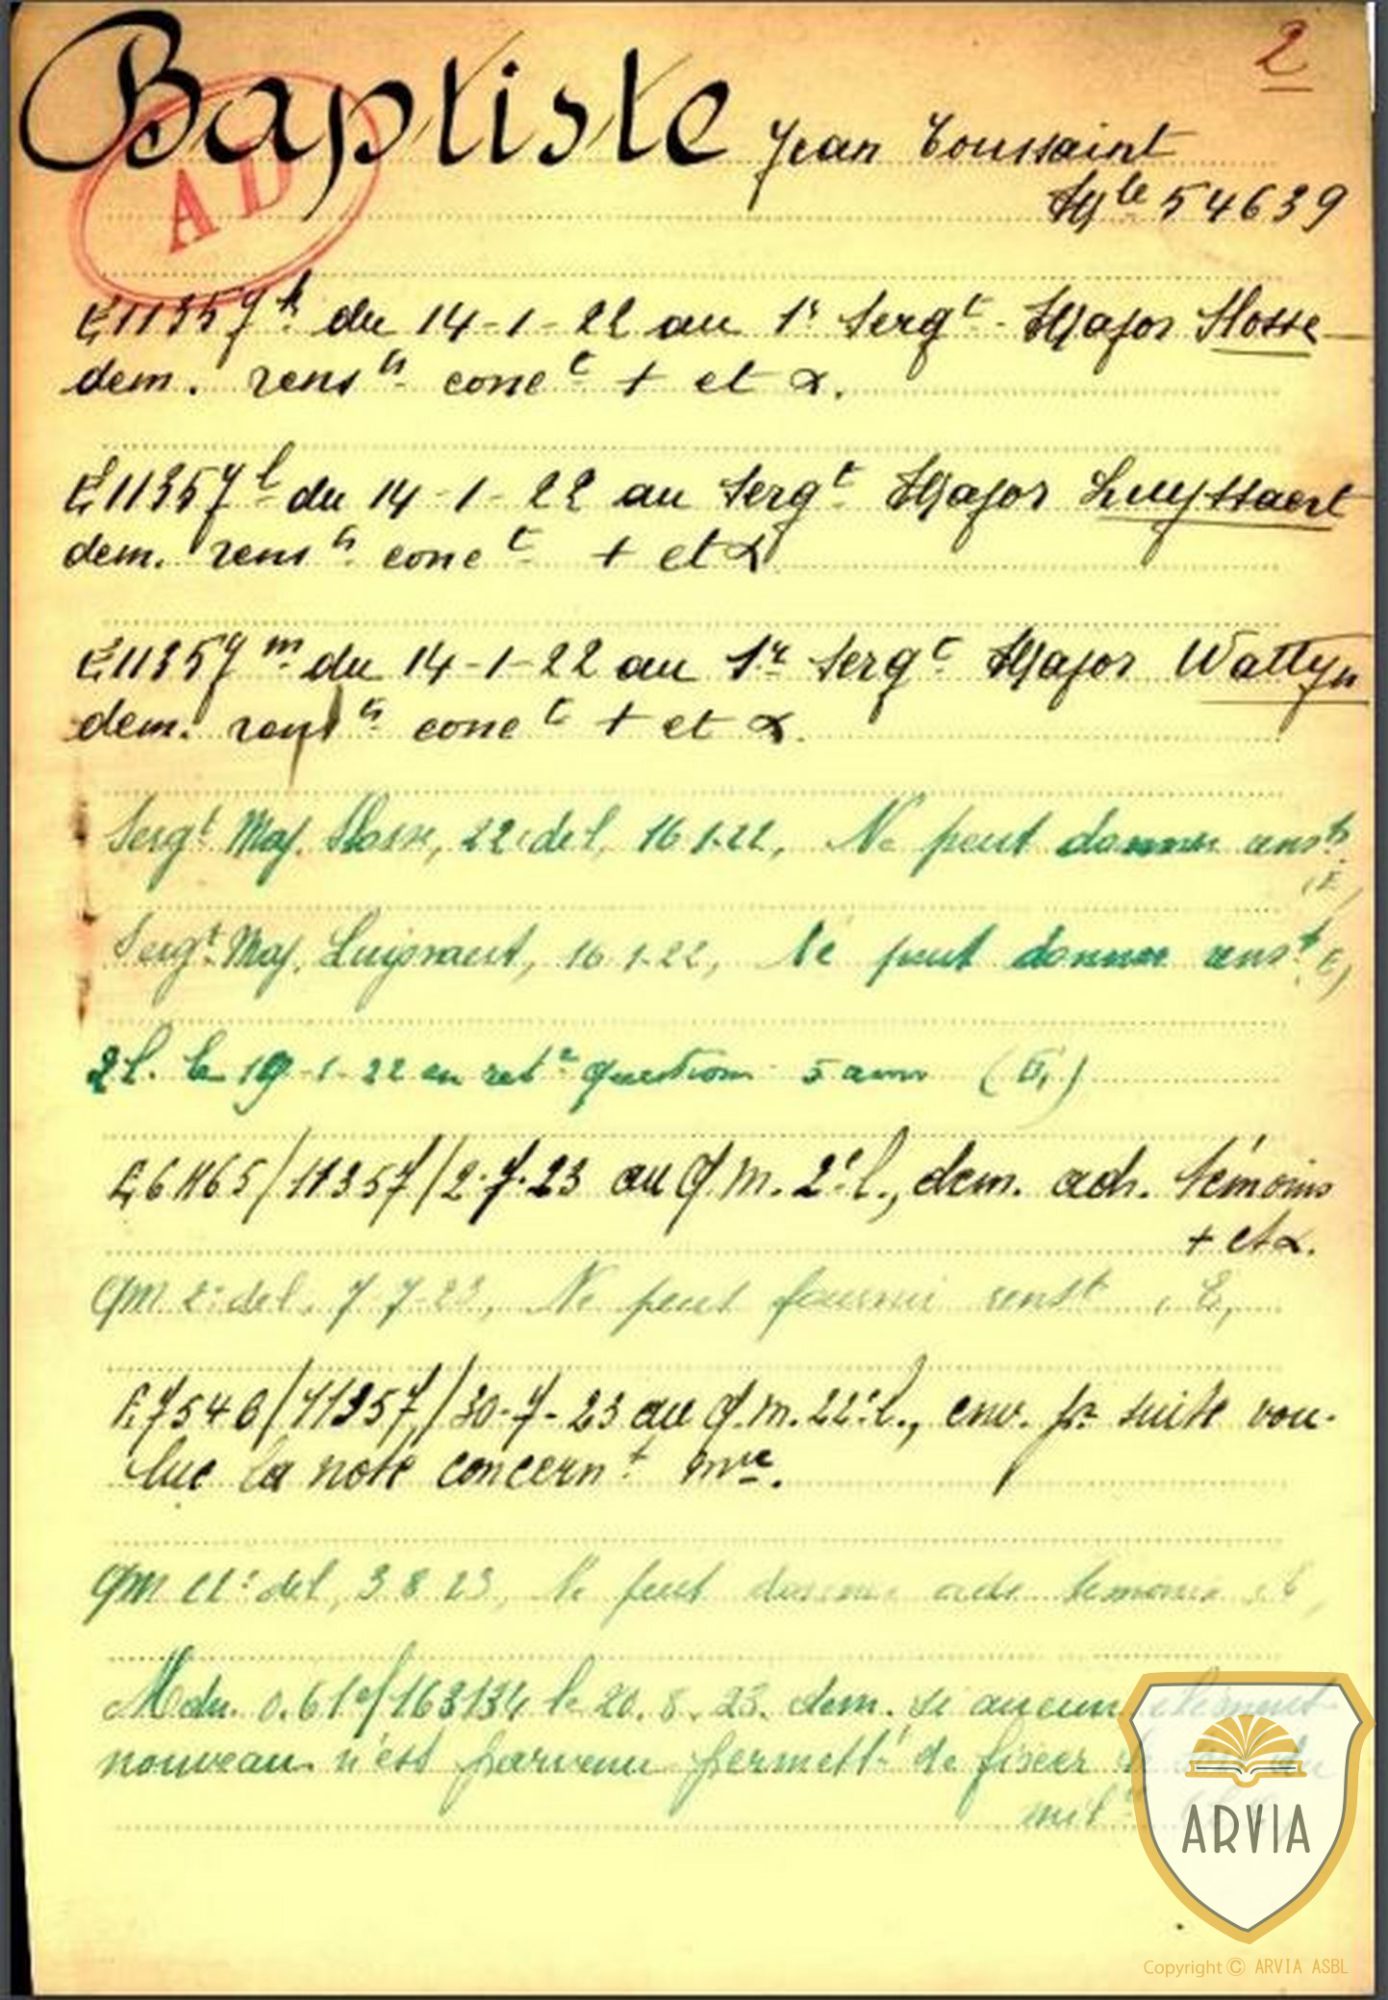 2
Baptiste Jean Toussaint
Mle 54639
AD
E11357k du 14-1-22 au 1r Sergt-Major Hosse
dem. rensts conct + et α.
E11357l du 14-1-22 au Sergt Major Luyssaert
dem. rensts conct + et α
E11357m du 14-1-22 au 1r Sergt Major Wattyn
dem. rensts conct + et α.
Sergt Maj. 22e del, 16.1.22, Ne peut donner rensts
(E)
Sergt Maj. 16.1.22, Ne peut donner renst (E)
2l. le 19-1-22 en question 5 ann (E)
E6465/11357/2.7.23 au Q.M. 2e l., dem. adr. témoins
+ et α.
QM 2e del. 7-7-23, Ne peut fournir renst (E)
E7546/11357/30-7-23 au Q.M. 22e l., env. pr suite vou-
lue la note concernt
QM 22e del, 3.8.23, Ne peut donner adr. témoins (E)
Mdn. 0.61e/163134 le 20.8.23. dem. si aucun élément
nouveau n'est parvenu permettt de fixer le
milre
ARVIA
Copyright © ARVIA ASBL